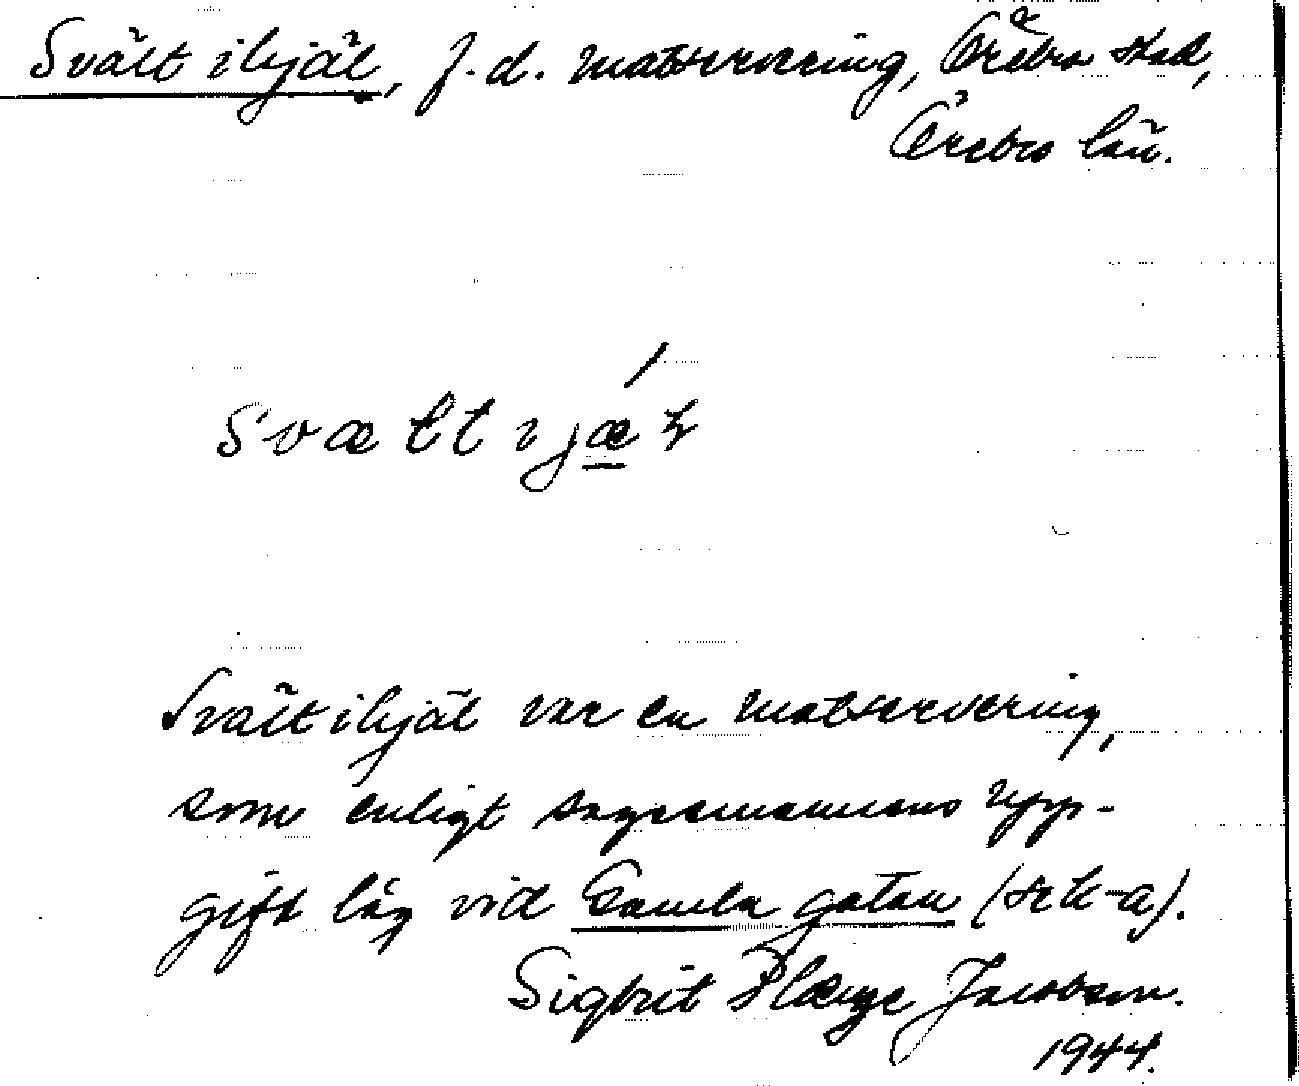 Svält ihjäl, f.d. matservering, Örebro stad,
Örebro län.
Svælt ijæl
Svält ihjäl var en matservering,
som enligt sagesmannens upp-
gift låg vid Gamla gatan (se k-a).
Sigbrit Plænge Jacobson.
1944.